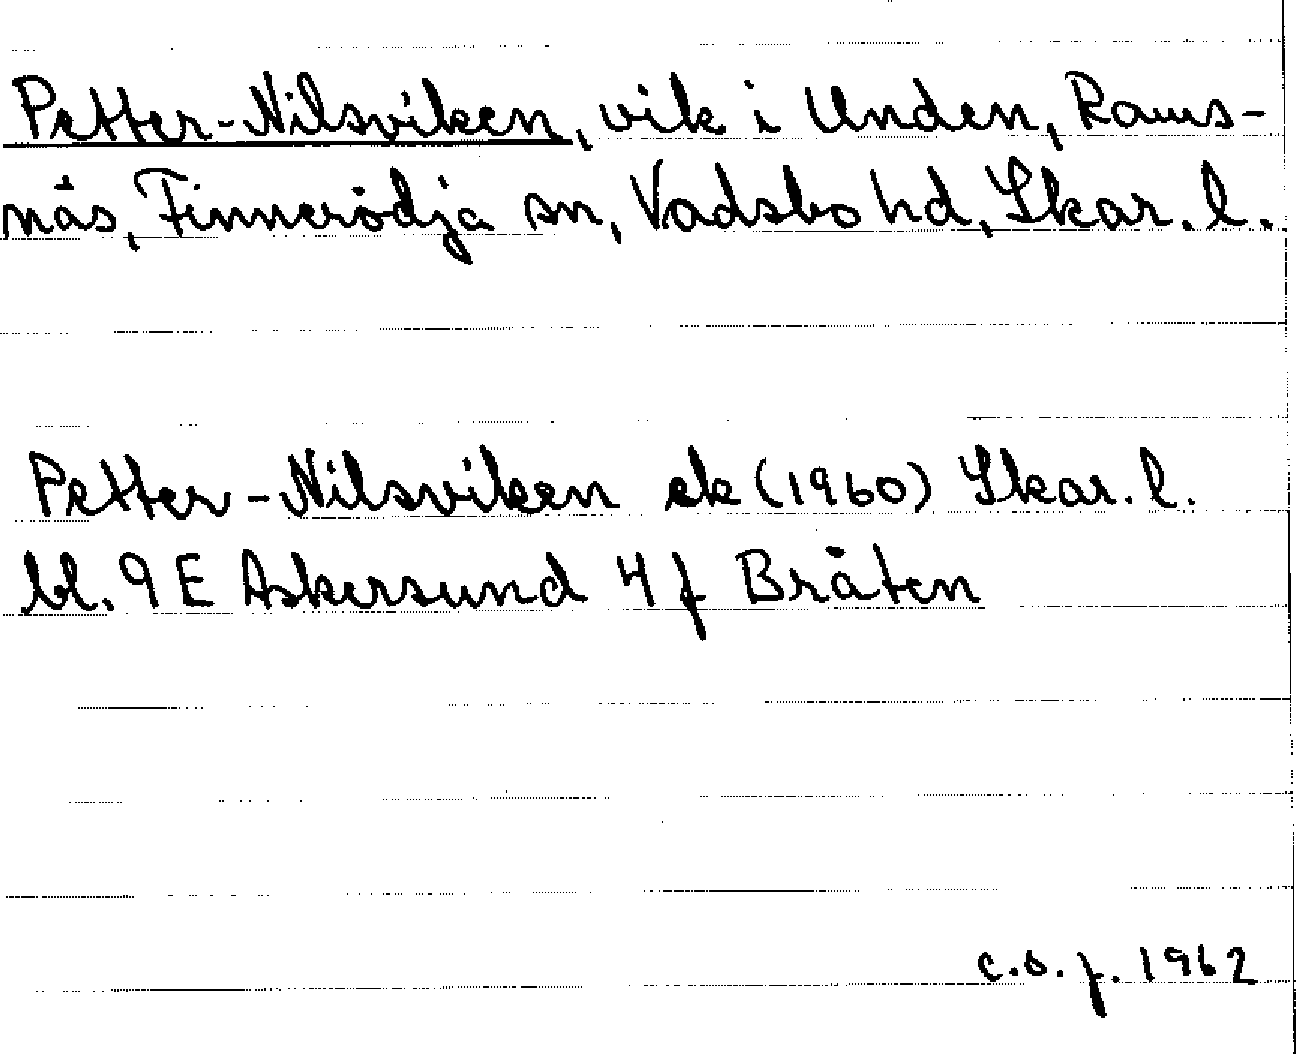 Petter-Nilsviken, vik i Unden, Rams-
näs, Finnerödja sn, Vadsbo hd, Skar. l.
Petter-Nilsviken ek (1960) Skar. l.
bl. 9 E Askersund 4 f Bråten
c.s. f. 1962